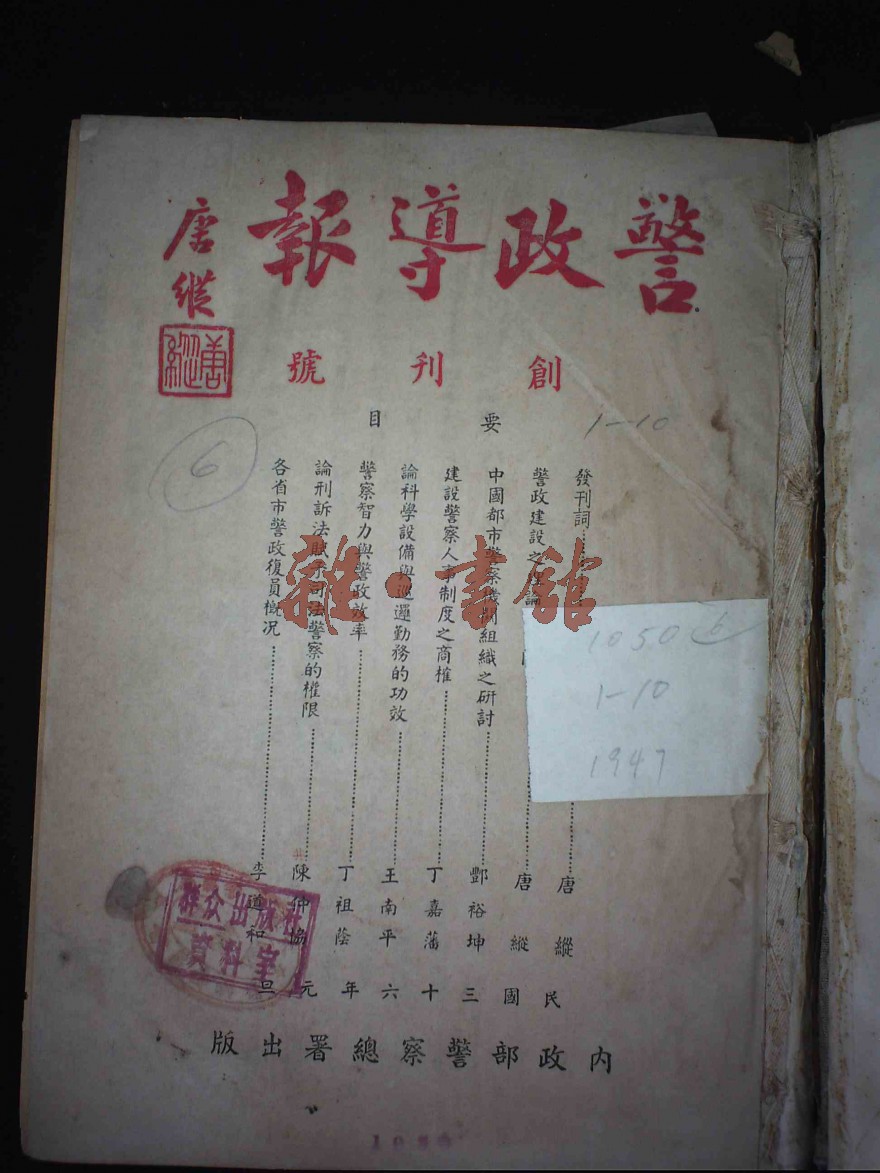 警政導報
唐縱
唐縱
創刊號
要目
1-10
6
發刊詞……唐縱
警政建設之理論……唐縱
中國都市警察機關組織之研討……酆裕坤
建設警察人事制度之商榷……丁嘉藩
論科學設備與巡邏勤務的功效……王南平
警察智力與警政效率……丁祖蔭
論刑訴法賦予司法警察的權限……陳仲協
各省市警政復員概况……李道和
1050
6
1-10
1947
雜·書館
群众出版社
資料室
民國三十六年元旦
內政部警察總署出版